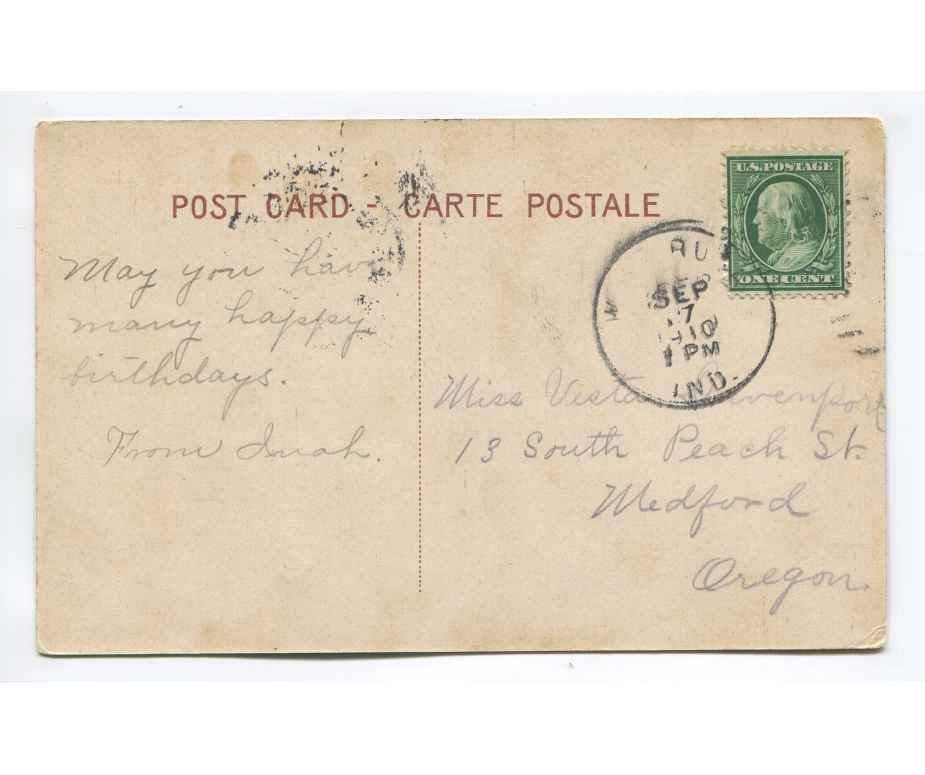 POST CARD - CARTE POSTALE
U.S. POSTAGE
ONE CENT
SEP
1910
1 PM
IND.
May you have
many happy
birthdays.
From Inah.
Miss Vesta
13 South Peach St.
Medford
Oregon